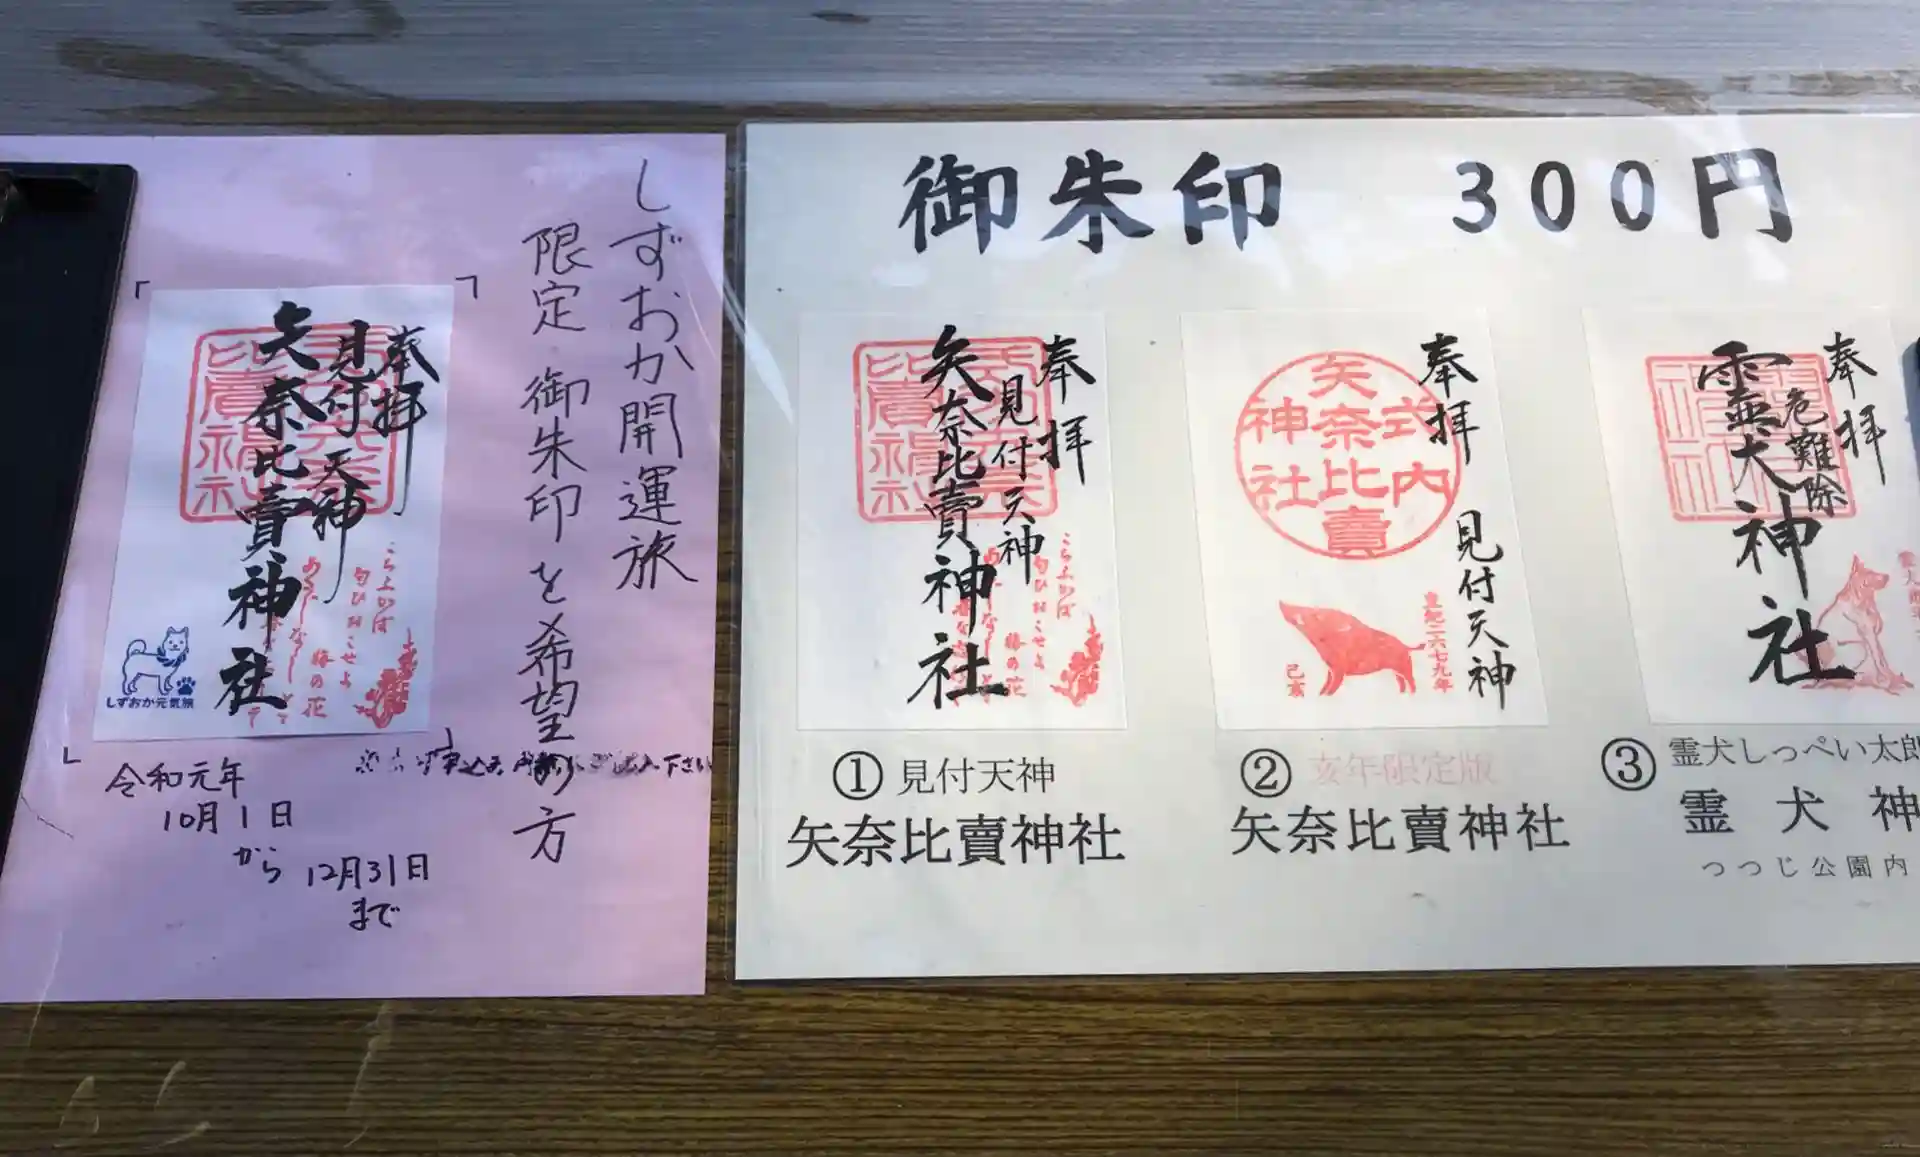 しずおか開運旅
限定 御朱印を希望の方
奉拝
見付天神
矢奈比賣神社
しずおか元気旅
令和元年
10月1日
から
12月31日
まで
御朱印 300円
奉拝
見付天神
矢奈比賣神社
こち吹かば
匂ひおこせよ
梅の花
①見付天神
矢奈比賣神社
奉拝
見付天神
式内
矢奈比賣
神社
皇紀二六七九年
己亥
②亥年限定版
矢奈比賣神社
奉拝
危難除
霊犬神社
③霊犬しっぺい太郎
霊犬神
つつじ公園内